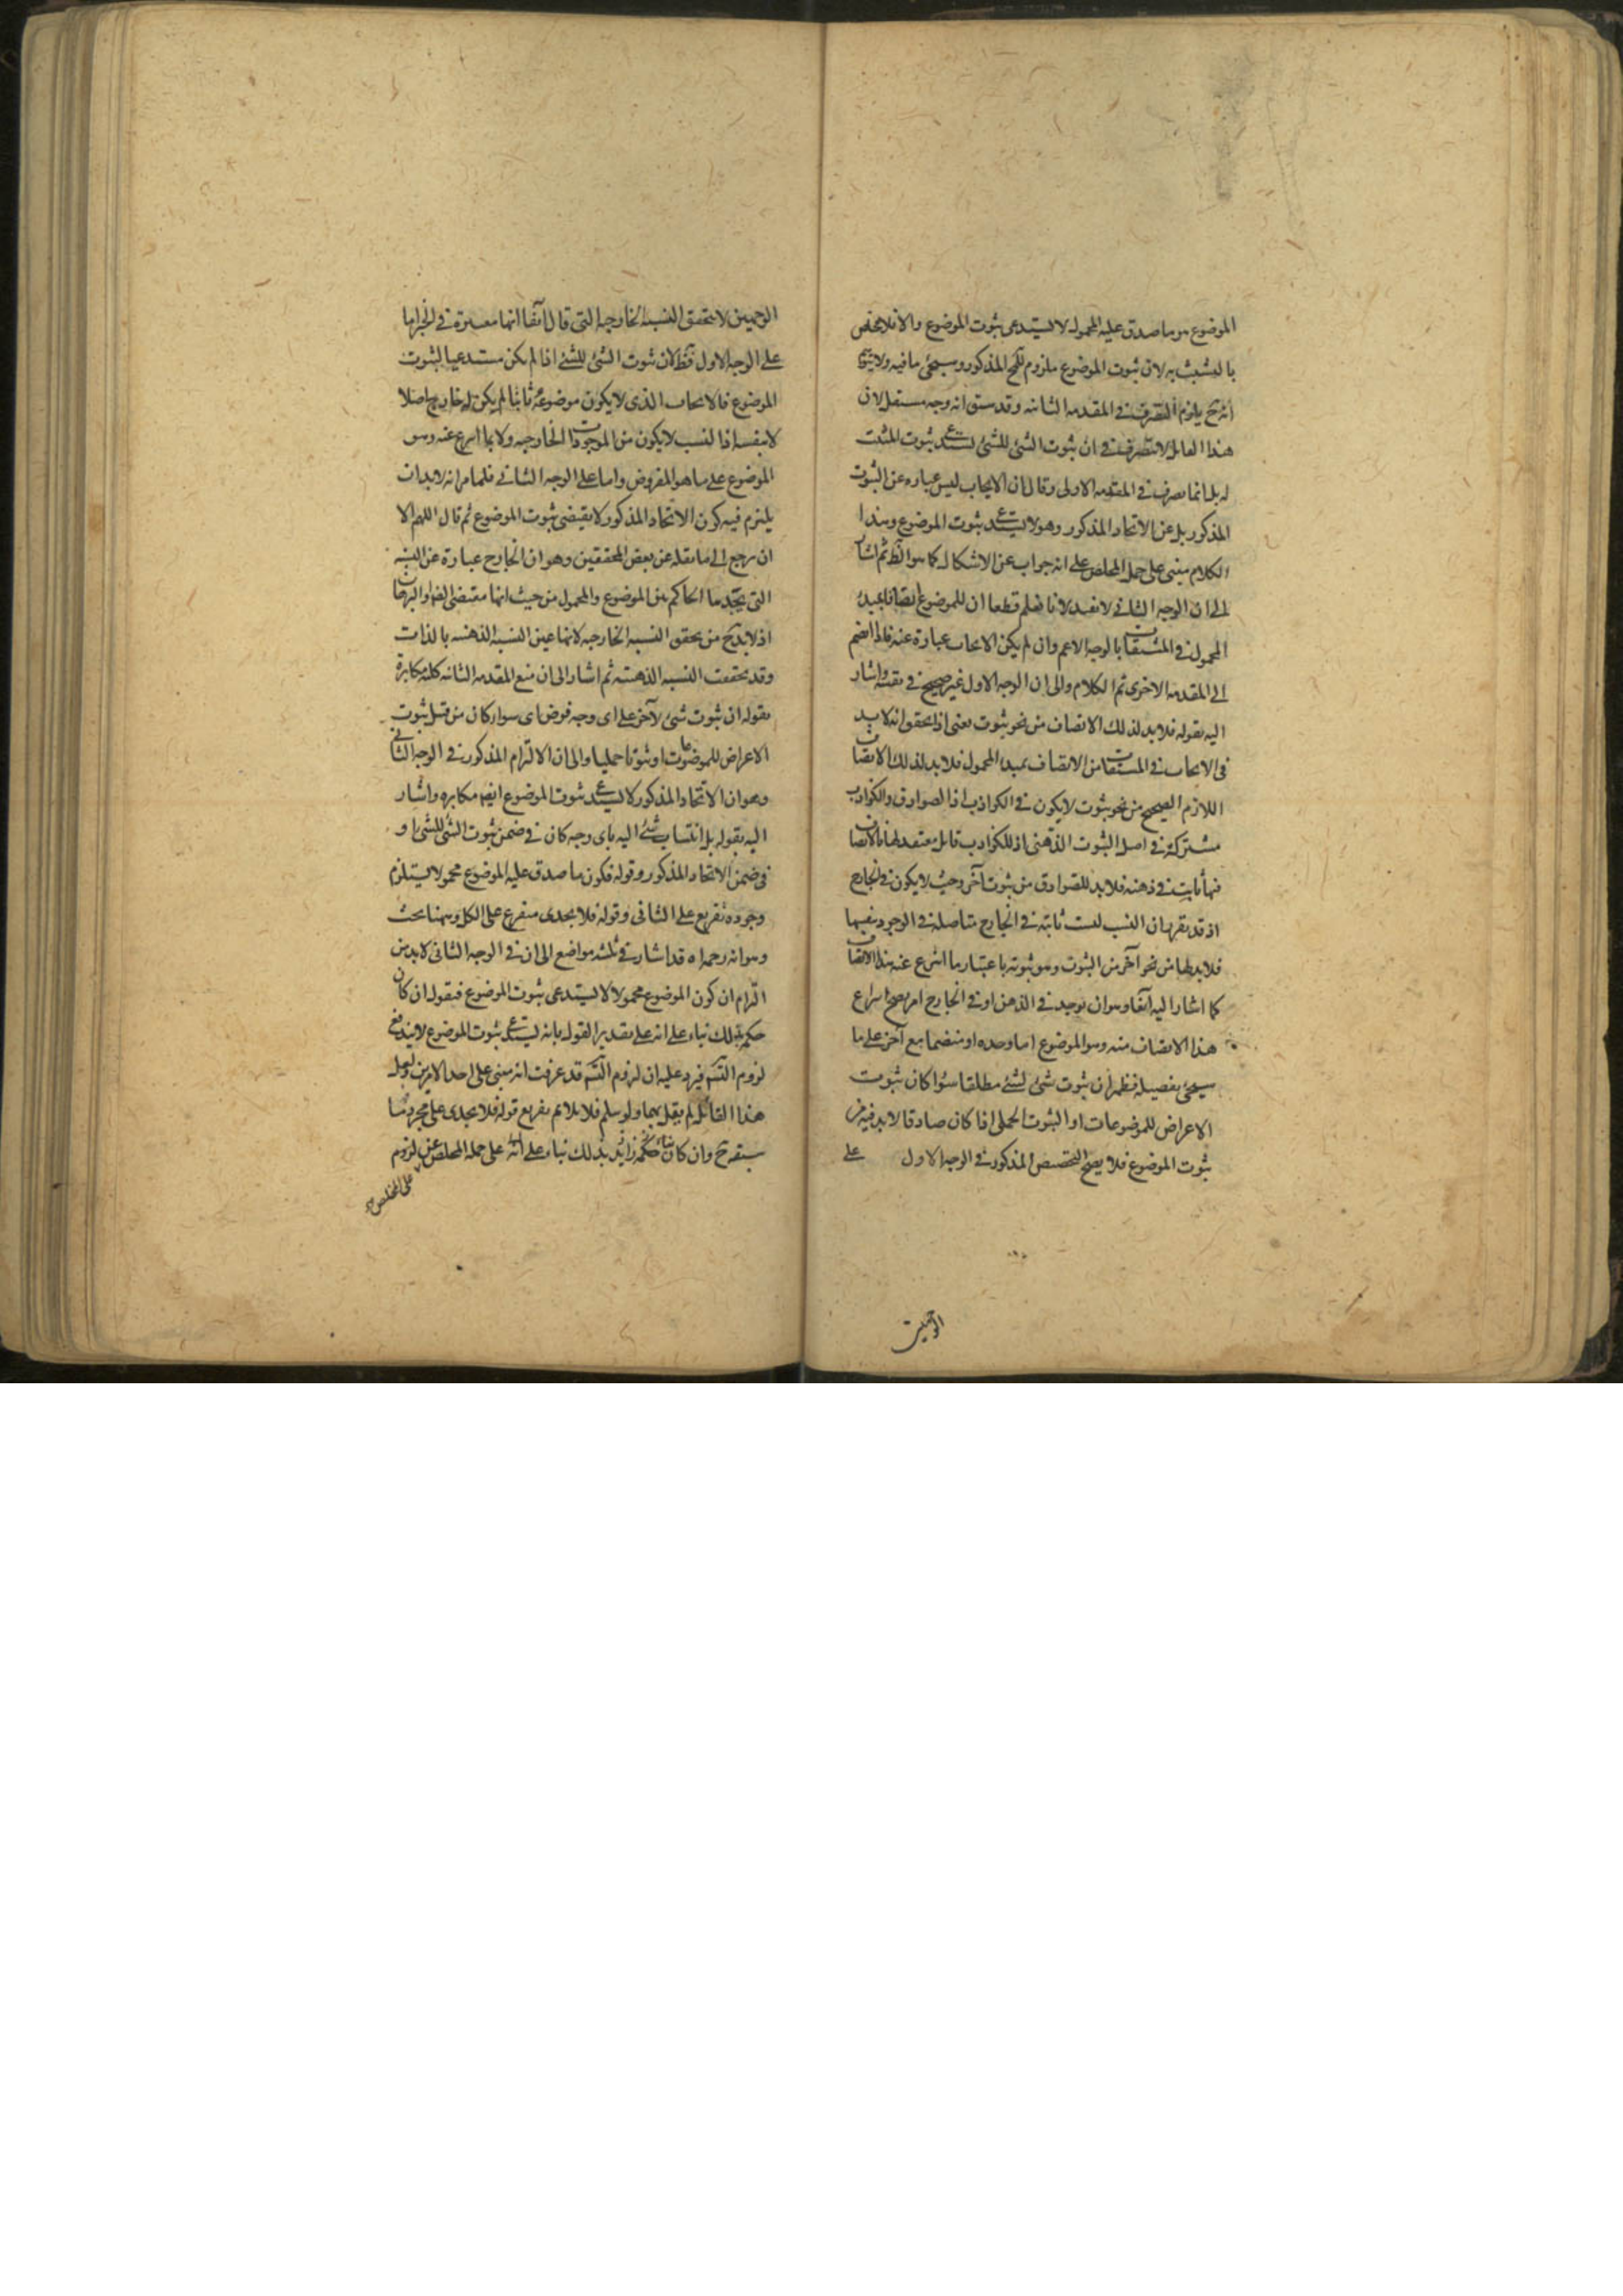 الموضوع هو ما صدق عليه المحمول لا يستدعى ثبوت الموضوع والا فلا مخلص
بالتشبث به لان ثبوت الموضوع ملزوم للمح المذكور وسيجئ ما فيه ولا يتوهم
انه ح يلزم التصرف فى المقدمه الثانيه وقد سبق انه وجه مستقل لان
هذا القائل لا يتصرف فى ان ثبوت الشئ للشئ يستدعى ثبوت المثبت
له بل انما تصرف فى المقدمه الاولى وقال ان الايجاب ليس عباره عن الثبوت
المذكور بل عن الاتحاد المذكور وهو لا يستدعى ثبوت الموضوع وهذا
الكلام مبنى على حمل المخلص على انه جواب عن الاشكال كما هو الظ ثم اشار
الى ان الوجه الثانى لا يفيد لانا نعلم قطعا ان للموضوع اتصافا بمبدئ
المحمول فى المشتقات بالوجه الاعم وان لم يكن الايجاب عبارة عنه فاذا انضم
الى المقدمه الاخرى تم الكلام والى ان الوجه الاول غير صحيح فى نفسه واشار
اليه بقوله فلا بد لذلك الاتصاف من نحو ثبوت يعنى اذا تحقق انه لا بد
فى الايجاب فى المشتقات من الاتصاف بمبدا المحمول فلا بد لذلك الاتصاف
اللازم الصحيح من نحو ثبوت لا يكون فى الكواذب اذ الصوادق والكواذب
مشتركة فى اصل الثبوت الذهنى اذ للكواذب قائل معتقد لها فالاتصاف
فيها ثابت فى ذهنه فلا بد للصوادق من ثبوت آخر وحيث لا يكون فى الخارج
اذ قد تقرر ان النسب ليست ثابته فى الخارج متاصلة فى الوجود بنفسها
فلا بد لها من نحو آخر من الثبوت وهو ثبوته باعتبار ما انتزع عنه هذا الاتصاف
كما اشار اليه آنفا وهو ان يوجد فى الذهن او فى الخارج امر يصح انتزاع
هذا الاتصاف منه وهو الموضوع اما وحده او منضما مع آخر على ما
سيجئ تفصيله فظهر ان ثبوت شئ لشئ مطلقا سواء كان ثبوت
الاعراض للموضوعات او الثبوت الحملى اذا كان صادقا لا بد فيه من
ثبوت الموضوع فلا يصح التخصيص المذكور فى الوجه الاول على
الوجهين
الوجهين لا يتحقق النسبه الخارجيه التى قال آنفا انها معتبرة فى الخبر اما
على الوجه الاول فظ لان ثبوت الشئ للشئ اذا لم يكن مستدعيا لثبوت
الموضوع فالايجاب الذى لا يكون موضوعه ثابتا لم يكن له خارج اصلا
لا بنفسه اذ النسب لا يكون من الموجودات الخارجيه ولا بما انتزع عنه وهو
الموضوع على ما هو المفروض واما على الوجه الثانى فلما مر انه لا بد ان
يلتزم فيه كون الاتحاد المذكور لا يقتضى ثبوت الموضوع ثم قال اللهم الا
ان يرجع الى ما نقله عن بعض المحققين وهو ان الخارج عبارة عن النسبه
التى يجدها الحاكم بين الموضوع والمحمول من حيث انها مقتضى الضرورة او البرهان
اذ لا بد ح من تحقق النسبه الخارجيه لانها عين النسبه الذهنيه بالذات
وقد تحققت النسبه الذهنيه ثم اشار الى ان منع المقدمه الثانيه كليه مكابرة
بقوله ان ثبوت شئ لآخر على اى وجه فرض اى سواء كان من قبيل ثبوت
الاعراض للموضوعات او ثبوتا حمليا والى ان الالتزام المذكور فى الوجه الثانى
وهو ان الاتحاد المذكور لا يستدعى ثبوت الموضوع ايضا مكابره واشار
اليه بقوله بل انتساب شئ اليه باى وجه كان فى ضمن ثبوت الشئ للشئ او
فى ضمن الاتحاد المذكور وقوله فكون ما صدق عليه الموضوع محمولا يستلزم
وجوده تفريع على الثانى وقوله فلا يجدى متفرع على الكل وههنا بحث
وهو انه رحمه اه قد اشار فى ثلثه مواضع الى ان فى الوجه الثانى لا بد من
التزام ان كون الموضوع محمولا لا يستدعى ثبوت الموضوع فنقول ان كان
حكمه بذلك بناء على انه على تقدير القول بانه يستدعى ثبوت الموضوع لا يندفع
لزوم التسه فيرد عليه ان لزوم التسه قد عرفت انه مبنى على احد الامرين ولعل
هذا القائل لم يقل بهما ولو سلم فلا يلائم تفريع قوله فلا يجدى على مجرد ما
سبق ح وان كان حكمه بذلك بناء على انه على حمله المخلص عن لزوم
على المخلص